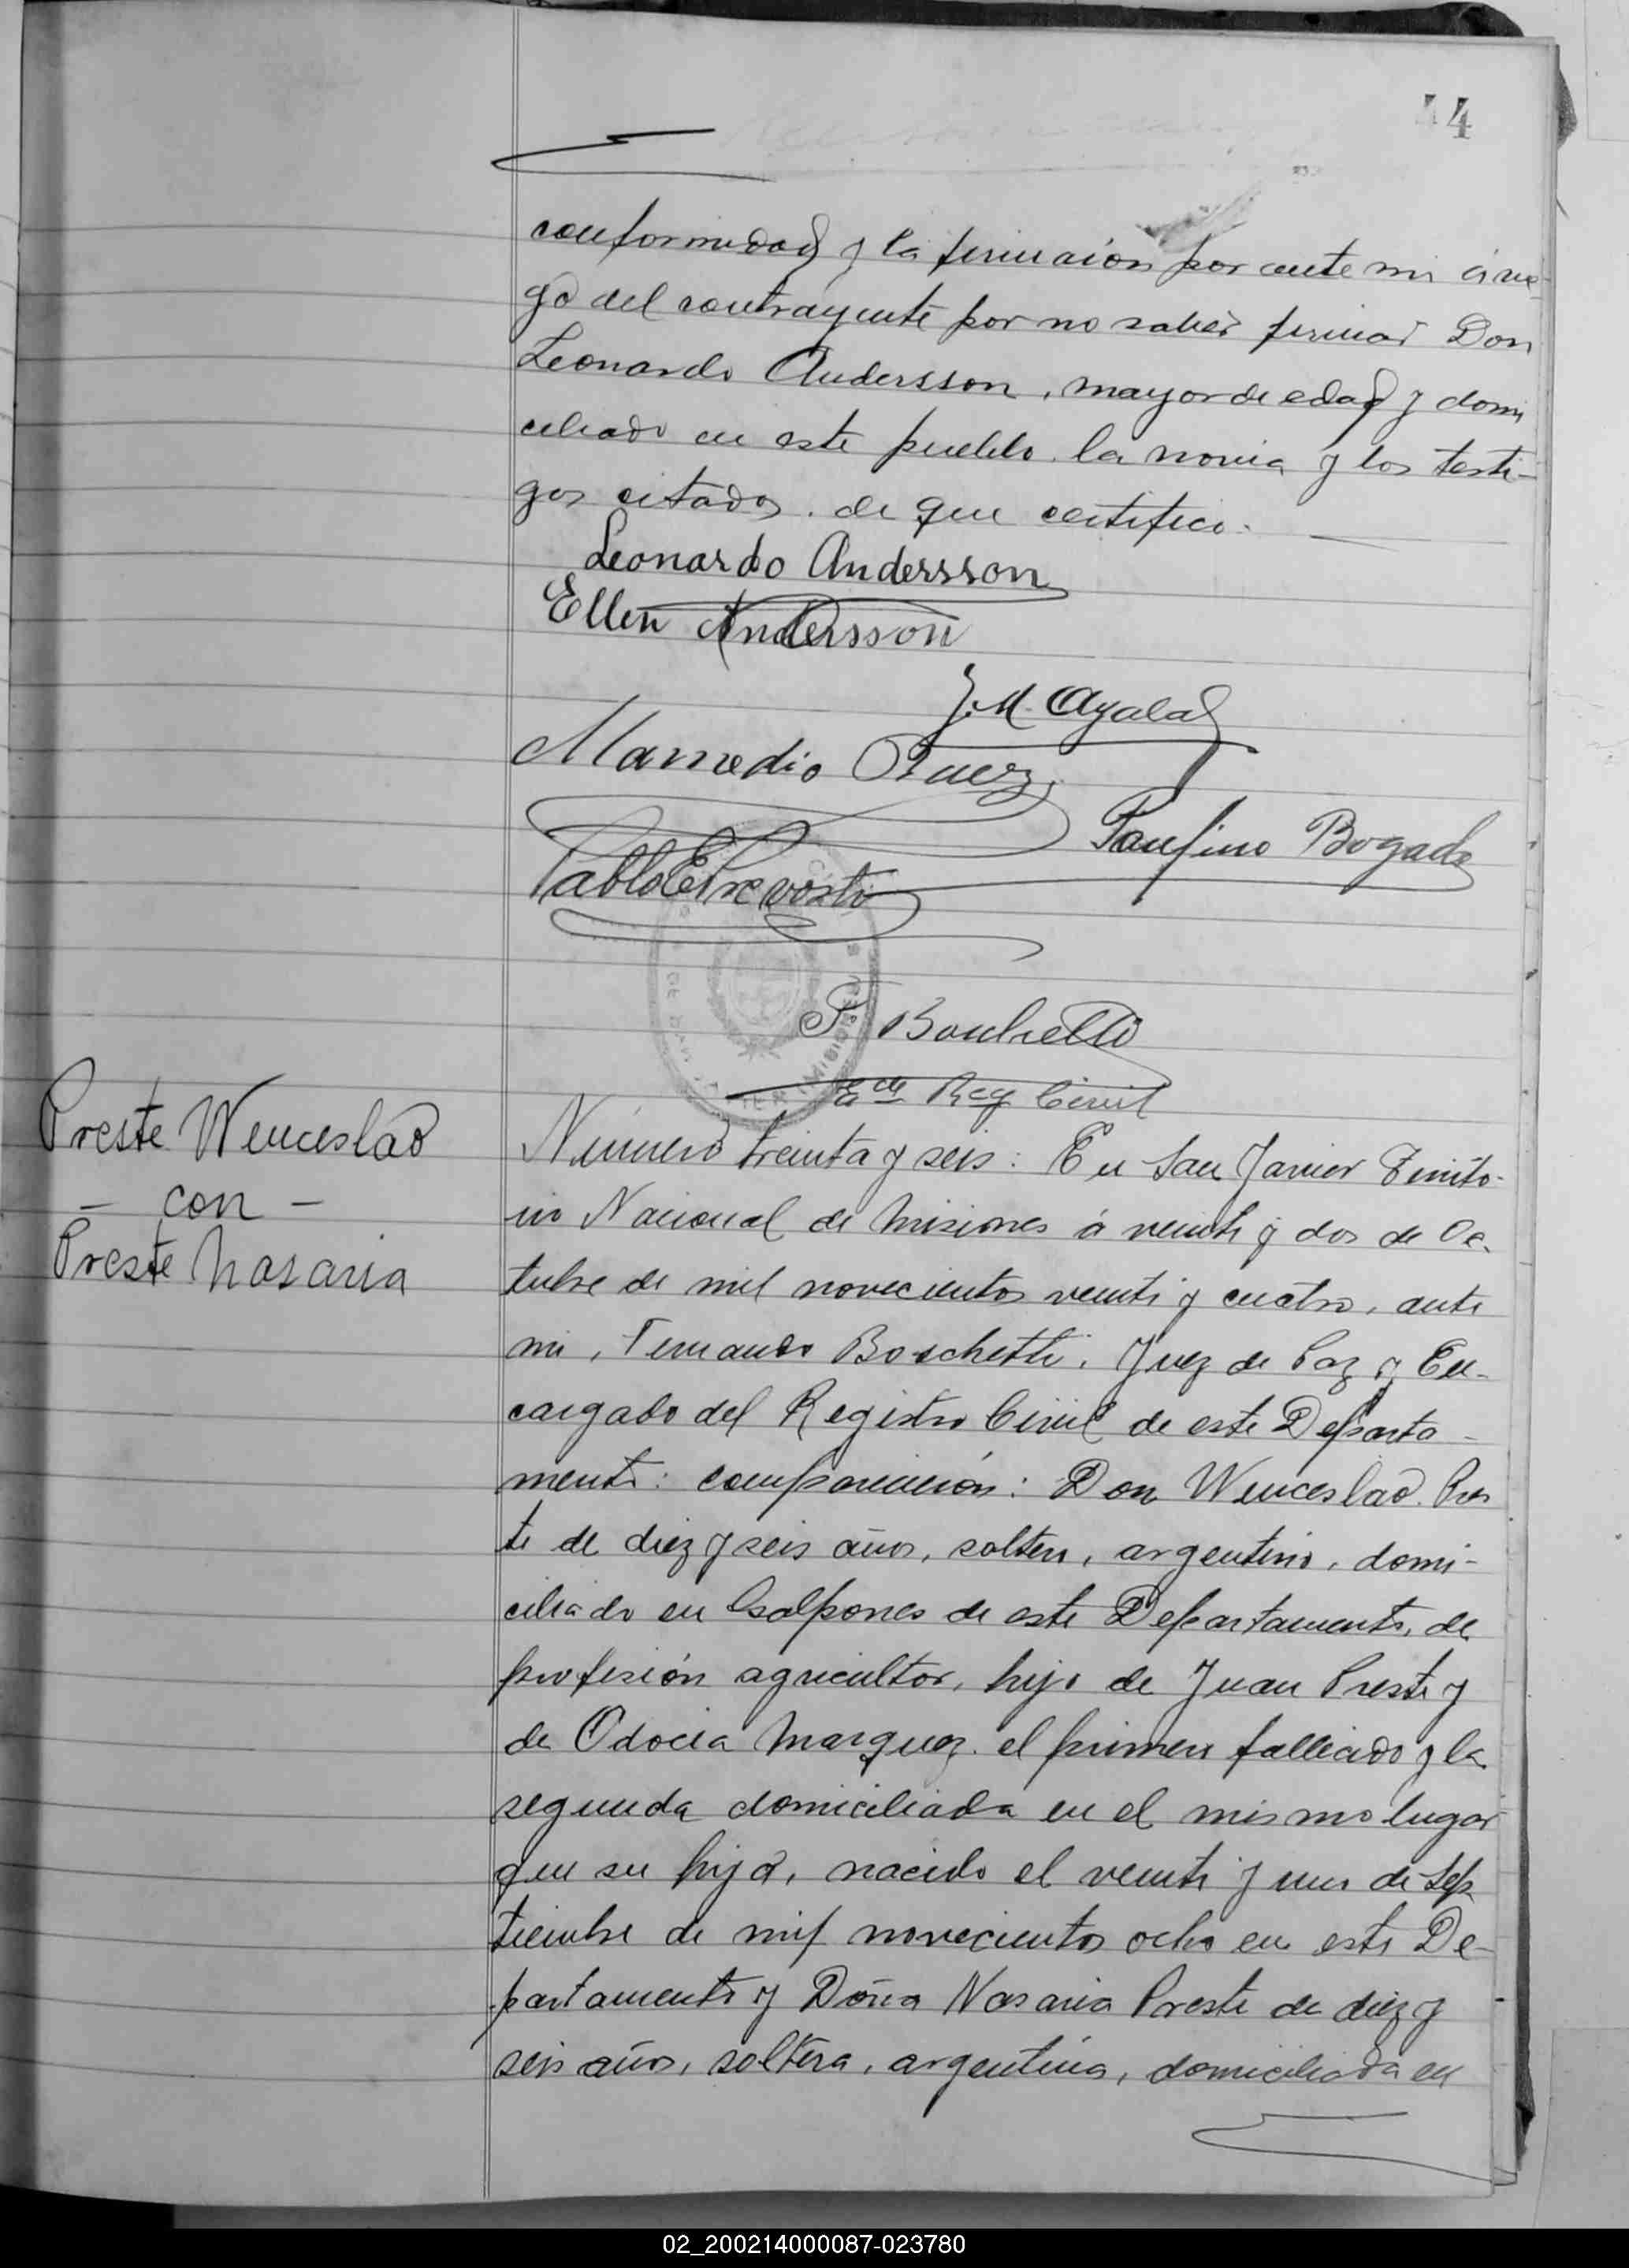 44
conformidad y la firmaron por ante mi á rue-
go del contrayente por no saber firmar Don
Leonardo Andersson, mayor de edad y domi
ciliado en este pueblo, la novia y los testi-
gos citados. de que certifico.
Leonardo Andersson
Ellen Andersson
J. M. Ayala
Mamedio
Paulino Bogado
Pablo E Prevosti
F. Boschetti
Edo Reg Civil
Preste Wenceslao
- con -
Preste Nasaria
Número treinta y seis: En San Javier Territo-
rio Nacional de Misiones á veinte y dos de Oc-
tubre de mil novecientos veinte y cuatro, ante
mi, Fernando Boschetti, Juez de Paz y En-
cargado del Registro Civil de este Departa-
mento: comparecieron: Don Wenceslao Pres
te de diez y seis años, soltero, argentino, domi-
ciliado en Galpones de este Departamento, de
profesión agricultor, hijo de Juan Preste y
de Odocia Marquez. el primero fallecido y la
segunda domiciliada en el mismo lugar
que su hijo, nacido el veinte y uno de Sep
tiembre de mil novecientos ocho en este De-
partamento y Doña Nasaria Preste de diez y
seis años, soltera, argentina, domiciliada en
02_200214000087-023780